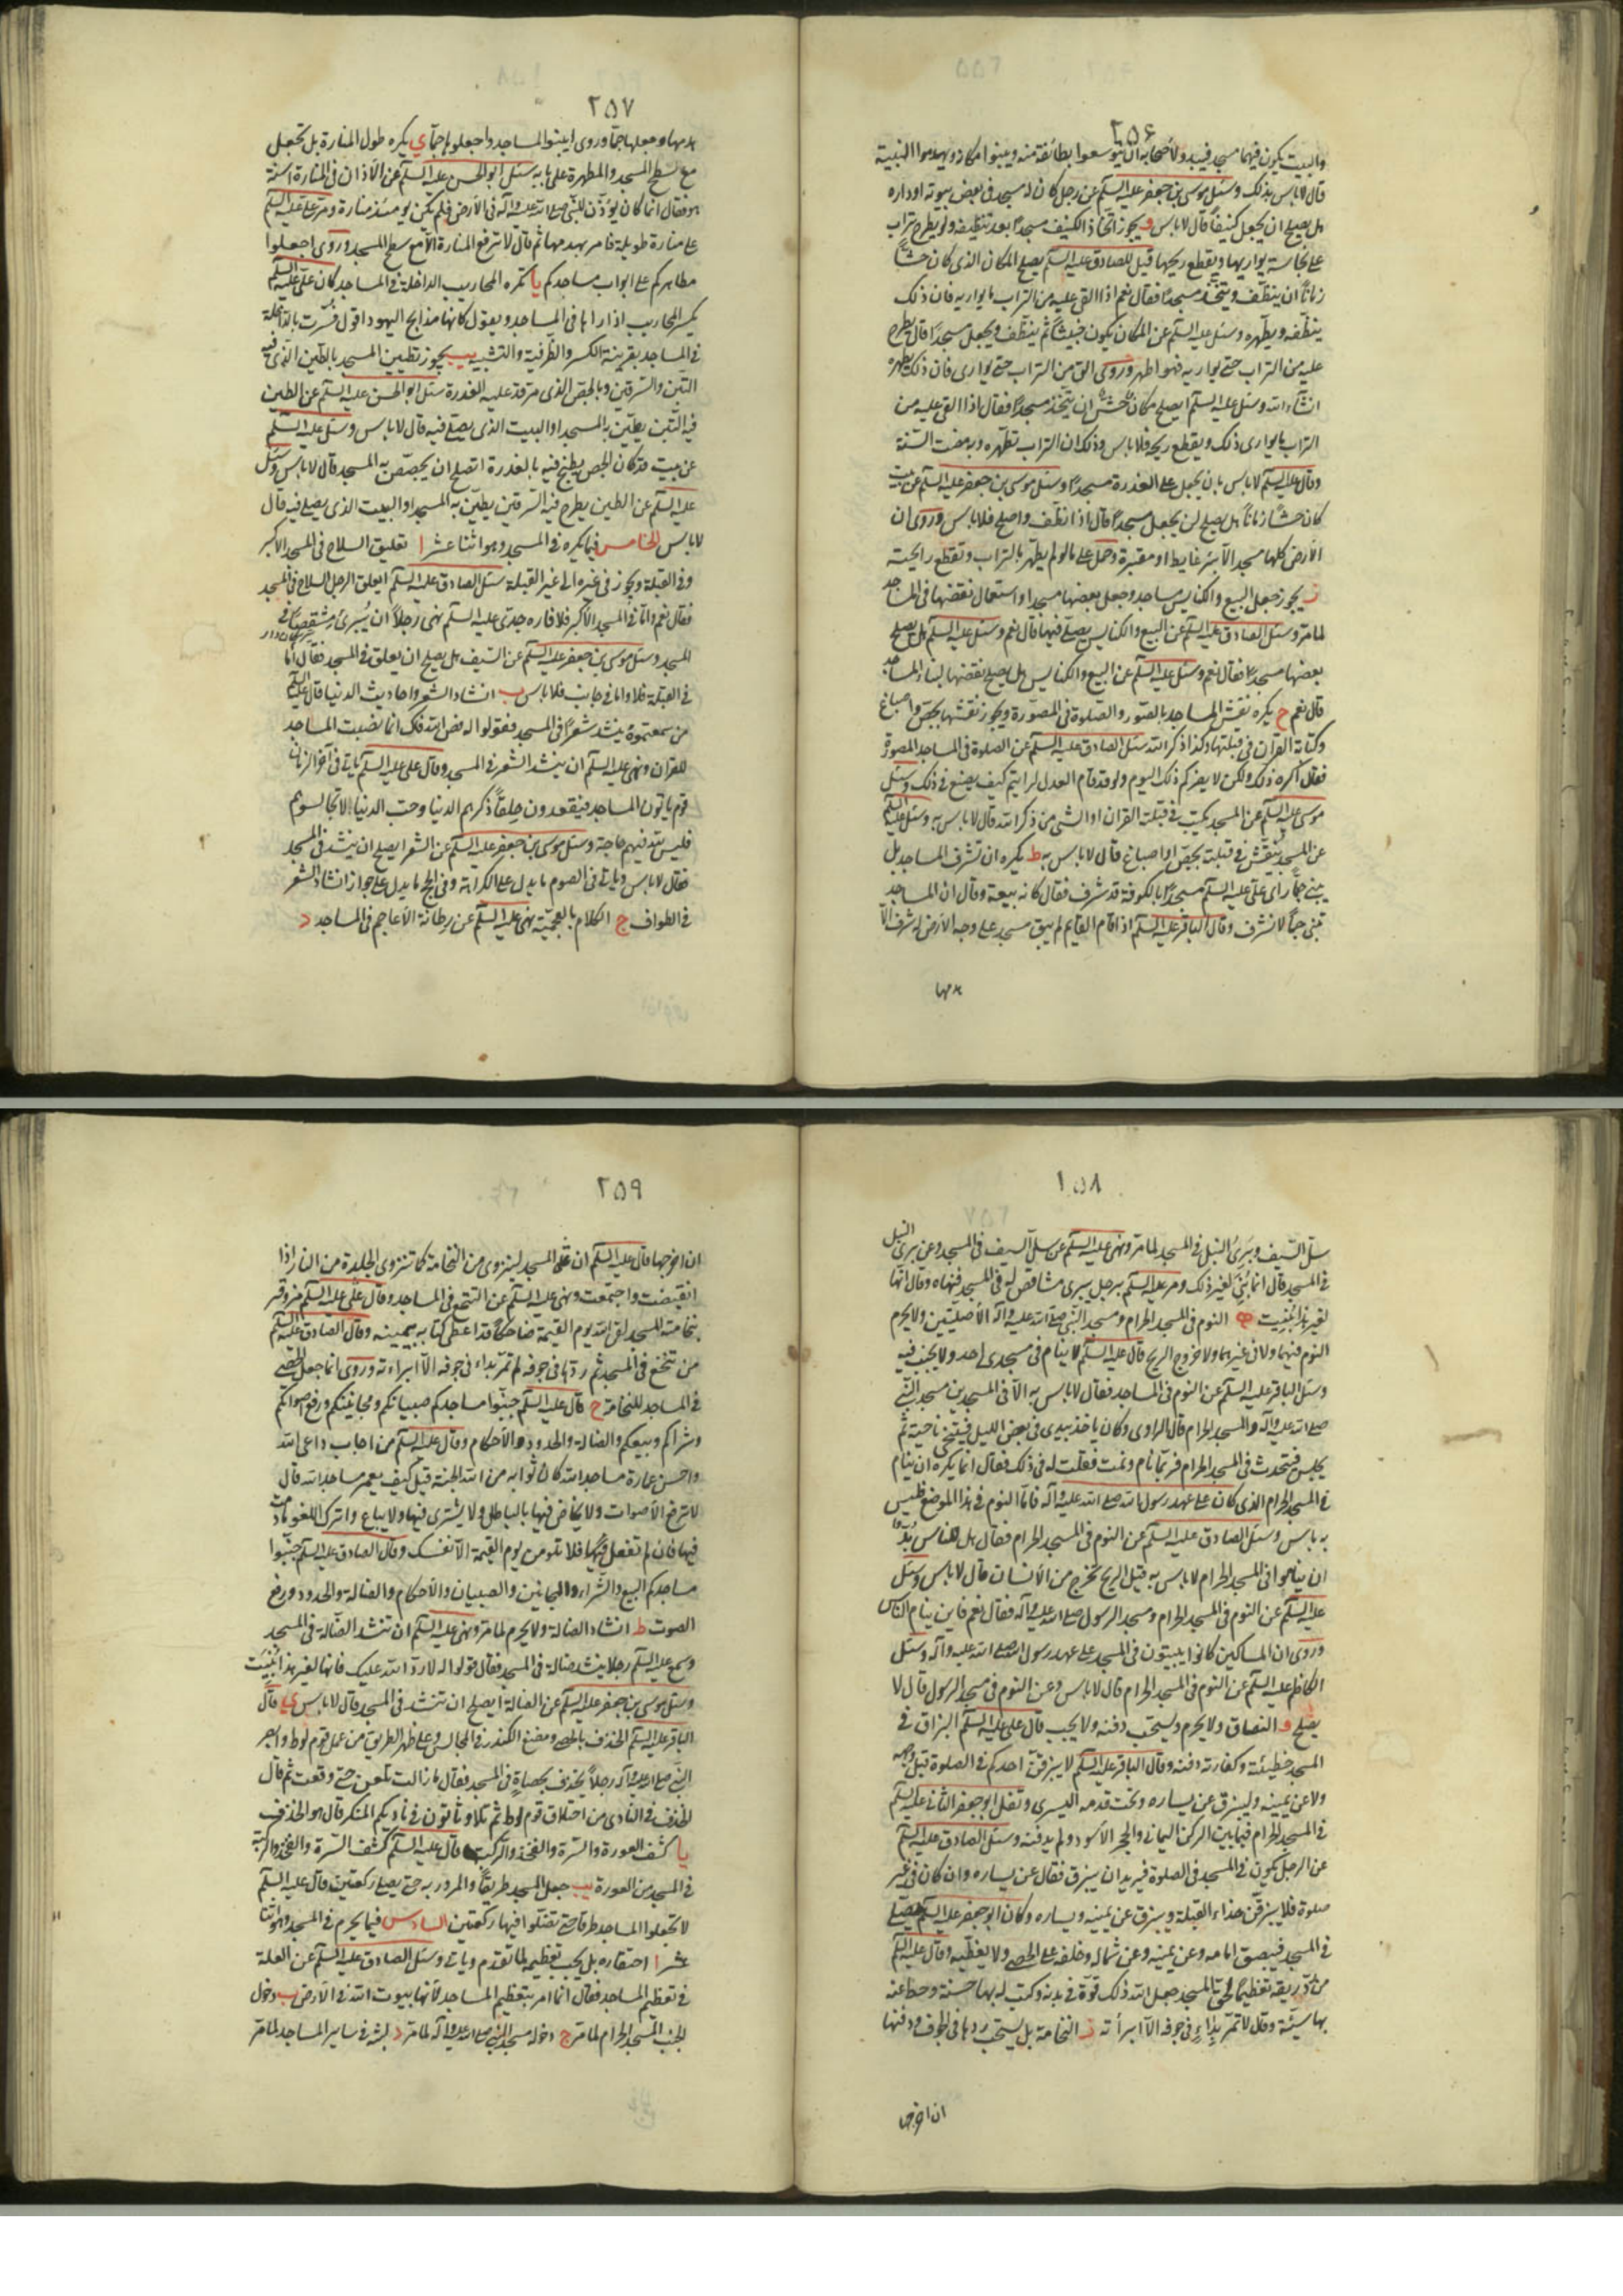 ٢٥۶
والبيت يكون فيهما مسجد فيبدو لاصحابه ان يتوسعوا بطائفة منه ويبنوا مكانه ويهدموا البنية
قال لا باس بذلك وسئل موسى بن جعفر عليه السلم عن رجل كان له مسجد في بعض بيوته او داره
هل يصلح ان يجعل كنيفا قال لا باس و يجوز اتخاذ الكنيف مسجدا بعد تنظيفه ولو بطرح تراب
على نجاسة يواريها ويقطع ريحها قيل للصادق عليه السلم يصلح المكان الذي كان حشّا
زمانا ان ينظّف ويتخذ مسجدا فقال نعم اذا القي عليه من التراب ما يواريه فان ذلك
ينظّفه ويطهّره وسئل عليه السلم عن المكان يكون خبيثا ثم ينظّف ويجعل مسجدا قال يطرح
عليه من التراب حتى يواريه فهو اطهر وروي القِ من التراب حتى يوارى فان ذلك يطهره
انشاء الله وسئل عليه السلم ايصلح مكان حشّ ان يتخذ مسجدا فقال اذا القي عليه من
التراب ما يوارى ذلك ويقطع ريحه فلا باس وذلك ان التراب تطهره وبه مضت السنة
وقال عليه السلم لا باس بان يجعل على العذرة مسجدا وسئل موسى بن جعفر عليه السلم عن بيت
كان حشّا زمانا هل يصلح ان يجعل مسجدا قال اذا نظّف واصلح فلا باس وروي ان
الارض كلها مسجد الا بئر غايط او مقبرة وحمل على ما لو لم يطهر بالتراب وتقطع رايحته
ز يجوز جعل البيع والكنايس مساجد وجعل بعضها مسجدا واستعمال نقضها في المساجد
لما مر وسئل الصادق عليه السلم عن البيع والكنايس يصلّى فيها قال نعم وسئل عليه السلم هل يصلح
بعضها مسجدا فقال نعم وسئل عليه السلم عن البيع والكنايس هل يصلح نقضها لبناء المساجد
قال نعم ح يكره نقش المساجد بالصور والصلوة في المصورة ويجوز نقشها بجص واصباغ
وكتابة القران في قبلتها وكذا ذكر الله سئل الصادق عليه السلم عن الصلوة في المساجد المصورة
فقال اكره ذلك ولكن لا يضركم ذلك اليوم ولو قد قام العدل لرايتم كيف يصنع في ذلك وسئل
موسى عليه السلم عن المسجد يكتب في قبلته القران او الشي من ذكر الله قال لا باس به وسئل عليه السلم
عن المسجد ينقش في قبلته بجص او اصباغ قال لا باس به ط يكره ان تشرف المساجد بل
يبنى جمّا راى علي عليه السلم مسجدا بالكوفة قد شرف فقال كانه بيعة وقال ان المساجد
تبنى جمّا لا تشرف وقال الباقر عليه السلم اذا قام القايم لم يبق مسجد على وجه الارض له شرف الا
هدمها
٢٥٧
هدمها وجعلها جمّا وروي ابنوا المساجد واجعلوها جمّا ي يكره طول المنارة بل تجعل
مع سطح المسجد والمطهرة على بابه سئل ابو الحسن عليه السلم عن الاذان في المنارة اسنّة
هو فقال انما كان يؤذّن للنبي صلى الله عليه واله في الارض فلم تكن يومئذ منارة ومر علي عليه السلم
على منارة طويلة فامر بهدمها ثم قال لا ترفع المنارة الا مع سطح المسجد وروي اجعلوا
مطاهركم على ابواب مساجدكم يا تكره المحاريب الداخلة في المساجد كان علي عليه السلم
يكسر المحاريب اذا راها في المساجد ويقول كانها مذابح اليهود اقول فسّرت بالداخلة
في المساجد بقرينة الكسر والظرفية والتشبيه يب يجوز تطيين المسجد بالطين الذي فيه
التبن والسرقين وبالجص الذي مر قد عليه العذرة سئل ابو الحسن عليه السلم عن الطين
فيه التبن يطيّن به المسجد او البيت الذي يصلّى فيه قال لا باس وسئل عليه السلم
عن بيت قد كان الجص يطبخ فيه بالعذرة اتصلح ان يجصّص به المسجد قال لا باس وسئل
عليه السلم عن الطين يطرح فيه السرقين يطيّن به المسجد او البيت الذي يصلى فيه قال
لا باس الخامس فيما يكره في المسجد وهو اثنا عشر ا تعليق السلاح في المسجد الاكبر
وفي القبلة ويجوز في غيره الى غير القبلة سئل الصادق عليه السلم ايعلق الرجل السلاح في المسجد
فقال نعم واما في المسجد الاكبر فلا فان جدي عليه السلم نهى رجلا ان يبرئ مشقصا في
المسجد وسئل موسى بن جعفر عليه السلم عن السيف هل يصلح ان يعلق في المسجد فقال اما
في القبلة فلا واما في جانب فلا باس ب انشاد الشعر واحاديث الدنيا قال عليه السلم
من سمعتموه ينشد شعرا في المسجد فقولوا له فض الله فاك انما نصبت المساجد
للقران ونهى عليه السلم ان ينشد الشعر في المسجد وقال علي عليه السلم ياتي في آخر الزمان
قوم ياتون المساجد فيقعدون حلقا ذكرهم الدنيا وحب الدنيا لا تجالسوهم
فليس لله فيهم حاجة وسئل موسى بن جعفر عليه السلم عن الشعر ايصلح ان ينشد في المسجد
فقال لا باس وياتي في الصوم ما يدل على الكراهة وفي الحج ما يدل على جواز انشاد الشعر
في الطواف ج الكلام بالعجمية نهى عليه السلم عن رطانة الاعاجم في المساجد د
١٥٨
سلّ السيف وبري النبل في المسجد لما مر ونهى عليه السلم عن سلّ السيف في المسجد وعن بري النبل
في المسجد قال انما بني لغير ذلك ومر عليه السلم برجل يبري مشاقص له في المسجد فنهاه وقال انها
لغير هذا بنيت ه النوم في المسجد الحرام ومسجد النبي صلى الله عليه واله الاصليّين ولا يحرم
النوم فيهما ولا في غيرهما ولا خروج الريح قال عليه السلم لا ينام في مسجدي احد ولا يجنب فيه
وسئل الباقر عليه السلم عن النوم في المساجد فقال لا باس به الا في المسجدين مسجد النبي
صلى الله عليه واله والمسجد الحرام قال الراوي وكان ياخذ بيدي في بعض الليل فيتنحى ناحية ثم
يجلس فيتحدث في المسجد الحرام فربما نام ونمت فقلت له في ذلك فقال انما يكره ان ينام
في المسجد الحرام الذي كان على عهد رسول الله صلى الله عليه واله فاما النوم في هذا الموضع فليس
به باس وسئل الصادق عليه السلم عن النوم في المسجد الحرام فقال هل للناس بدّ
ان يناموا في المسجد الحرام لا باس به قيل الريح تخرج من الانسان قال لا باس وسئل
عليه السلم عن النوم في المسجد الحرام ومسجد الرسول صلى الله عليه واله فقال نعم فاين ينام الناس
وروي ان المساكين كانوا يبيتون في المسجد على عهد رسول الله صلى الله عليه واله وسئل
الكاظم عليه السلم عن النوم في المسجد الحرام قال لا باس وعن النوم في مسجد الرسول قال لا
يصلح و البصاق ولا يحرم ويستحب دفنه ولا يجب قال علي عليه السلم البزاق في
المسجد خطيئة وكفارته دفنه وقال الباقر عليه السلم لا يبزقنّ احدكم في الصلوة قبل وجهه
ولا عن يمينه وليبزق عن يساره وتحت قدمه اليسرى وتفل ابو جعفر الثاني عليه السلم
في المسجد الحرام فيما بين الركن اليماني والحجر الاسود ولم يدفنه وسئل الصادق عليه السلم
عن الرجل يكون في المسجد في الصلوة فيريد ان يبزق فقال عن يساره وان كان في غير
صلوة فلا يبزقن حذاء القبلة ويبزق عن يمينه ويساره وكان ابو جعفر عليه السلم يصلي
في المسجد فيبصق امامه وعن يمينه وعن شماله وخلفه على الحصى ولا يغطّيه وقال عليه السلم
من ردّ ريقه تعظيما لحق المسجد جعل الله ذلك قوّة في بدنه وكتب له بها حسنة وحط عنه
بها سيّئة وقال لا تمرّ بداء في جوفه الا ابرأته ز النخامة بل يستحب ردها في الجوف ودفنها
ان اخرجها
٢٥٩
ان اخرجها قال عليه السلم ان المسجد لينزوي من النخامة كما تنزوي الجلدة من النار اذا
انقبضت واجتمعت ونهى عليه السلم عن التنخع في المساجد وقال علي عليه السلم من وقر
بنخامته المسجد لقي الله يوم القيمة ضاحكا قد اعطي كتابه بيمينه وقال الصادق عليه السلم
من تنخع في المسجد ثم ردها في جوفه لم تمر بداء في جوفه الا ابراته وروي انما جعل الحصى
في المساجد للنخامة ح قال عليه السلم جنّبوا مساجدكم صبيانكم ومجانينكم ورفع اصواتكم
وشراكم وبيعكم والضالة والحدود والاحكام وقال عليه السلم من اجاب داعي الله
واحسن عمارة مساجد الله كان ثوابه من الله الجنة قيل كيف يعمر مساجد الله قال
لا ترفع الاصوات ولا يخاض فيها بالباطل ولا يشترى فيها ولا يباع واترك اللغو ما دمت
فيها فان لم تفعل فلا تلومنّ يوم القيمة الا نفسك وقال الصادق عليه السلم جنّبوا
مساجدكم البيع والشراء والمجانين والصبيان والاحكام والضالة والحدود ورفع
الصوت ط انشاد الضالة ولا يحرم لما مر ونهى عليه السلم ان تنشد الضالة في المسجد
وسمع عليه السلم رجلا ينشد ضالة في المسجد فقال قولوا له لا ردّ الله عليك فانها لغير هذا بنيت
وسئل موسى بن جعفر عليه السلم عن الضالة ايصلح ان تنشد في المسجد قال لا باس ي قال
الباقر عليه السلم الخذف بالحصى ومضغ الكندر في المجالس وعلى ظهر الطريق من عمل قوم لوط وابصر
النبي صلى الله عليه واله رجلا يخذف بحصاة في المسجد فقال ما زالت تلعن حتى وقعت ثم قال
الخذف في النادي من اخلاق قوم لوط ثم تلا وتاتون في ناديكم المنكر قال هو الخذف
يا كشف العورة والسرة والفخذ والركبة قال عليه السلم كشف السرة والفخذ والركبة
في المسجد من العورة يب جعل المسجد طريقا والمرور به حتى يصلي ركعتين قال عليه السلم
لا تجعلوا المساجد طرقا حتى تصلّوا فيها ركعتين السادس فيما يحرم في المسجد وهو اثنا
عشر ا احتقاره بل يجب تعظيمه لما تقدم وياتي وسئل الصادق عليه السلم عن العلة
في تعظيم المساجد فقال انما امر بتعظيم المساجد لانها بيوت الله في الارض ب دخول
الجنب المسجد الحرام لما مر ج دخوله مسجد النبي صلى الله عليه واله لما مر د لبثه في ساير المساجد لما مر